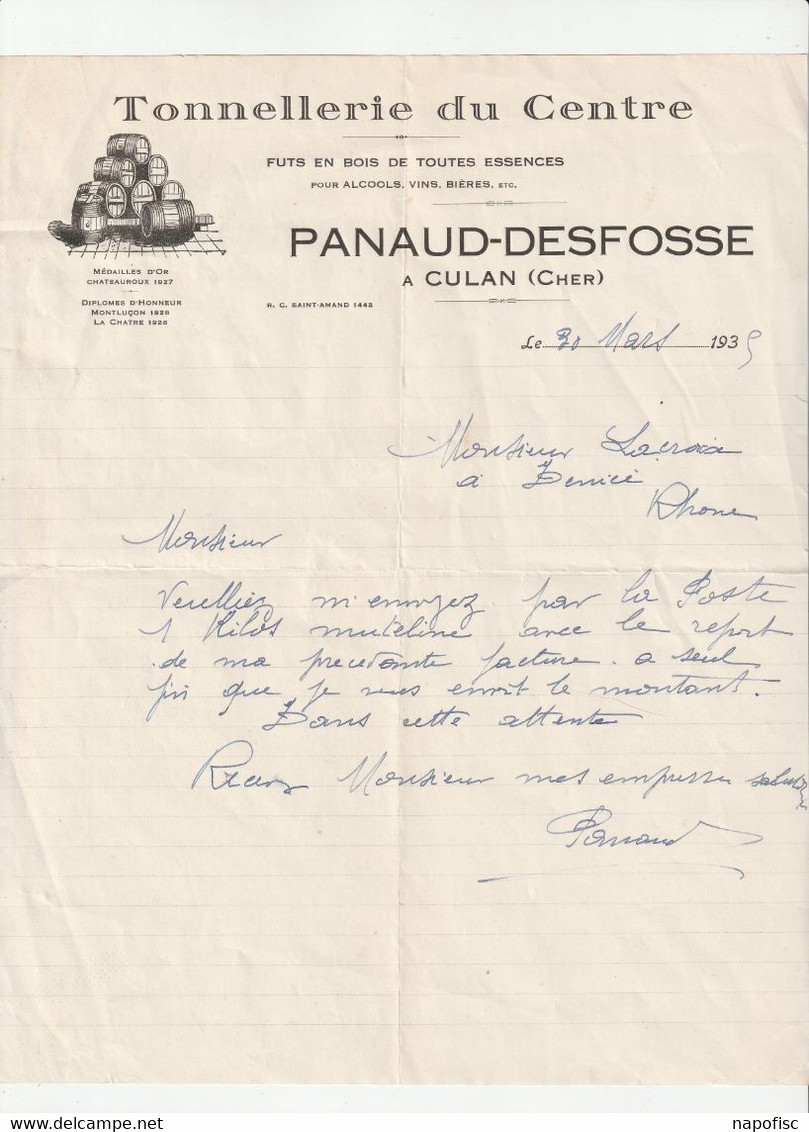 Tonnellerie du Centre
FUTS EN BOIS DE TOUTES ESSENCES
POUR ALCOOLS, VINS, BIÈRES, ETC.
PANAUD-DESFOSSE
A CULAN (CHER)
MÉDAILLES D'OR
CHATEAUROUX 1927
DIPLOMES D'HONNEUR
MONTLUÇON 1928
LA CHATRE 1926
R. C. SAINT-AMAND 1442
Le 30 Mars 1935
Monsieur Lacroix
a Denicé
Rhone
Monsieur
m'envoyez par la Poste
1 Kilos muteline avec le report
de ma precedante facture a seul
fin que je vous envoit le montant.
Dans cette attente
Monsieur mes empressé
Panaud
delcampe.net
napofisc